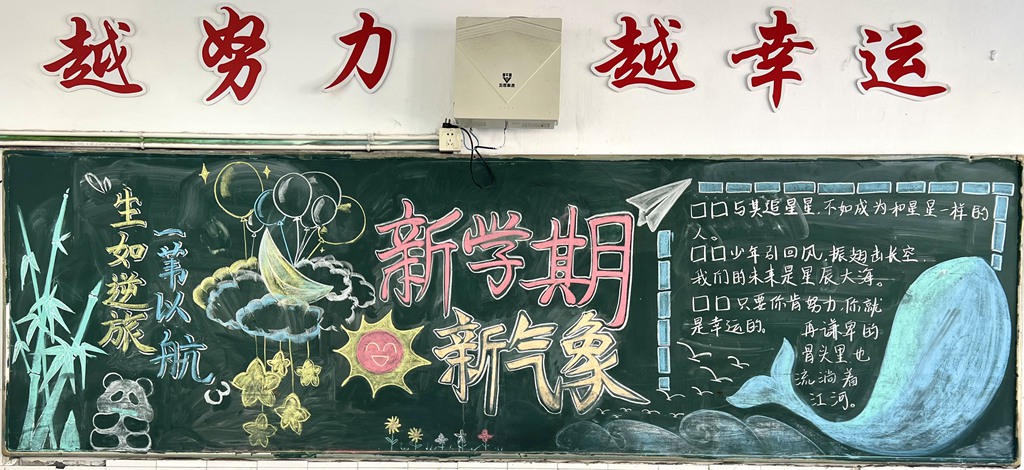 越努力 越幸运
生如逆旅
一苇以航
新学期
新气象
□□与其追星星,不如成为和星星一样的
人。
□□少年引回风,振翅击长空,
我们的未来是星辰大海。
□□只要你肯努力,你就
是幸运的。
再谦卑的
骨头里也
流淌着
江河。